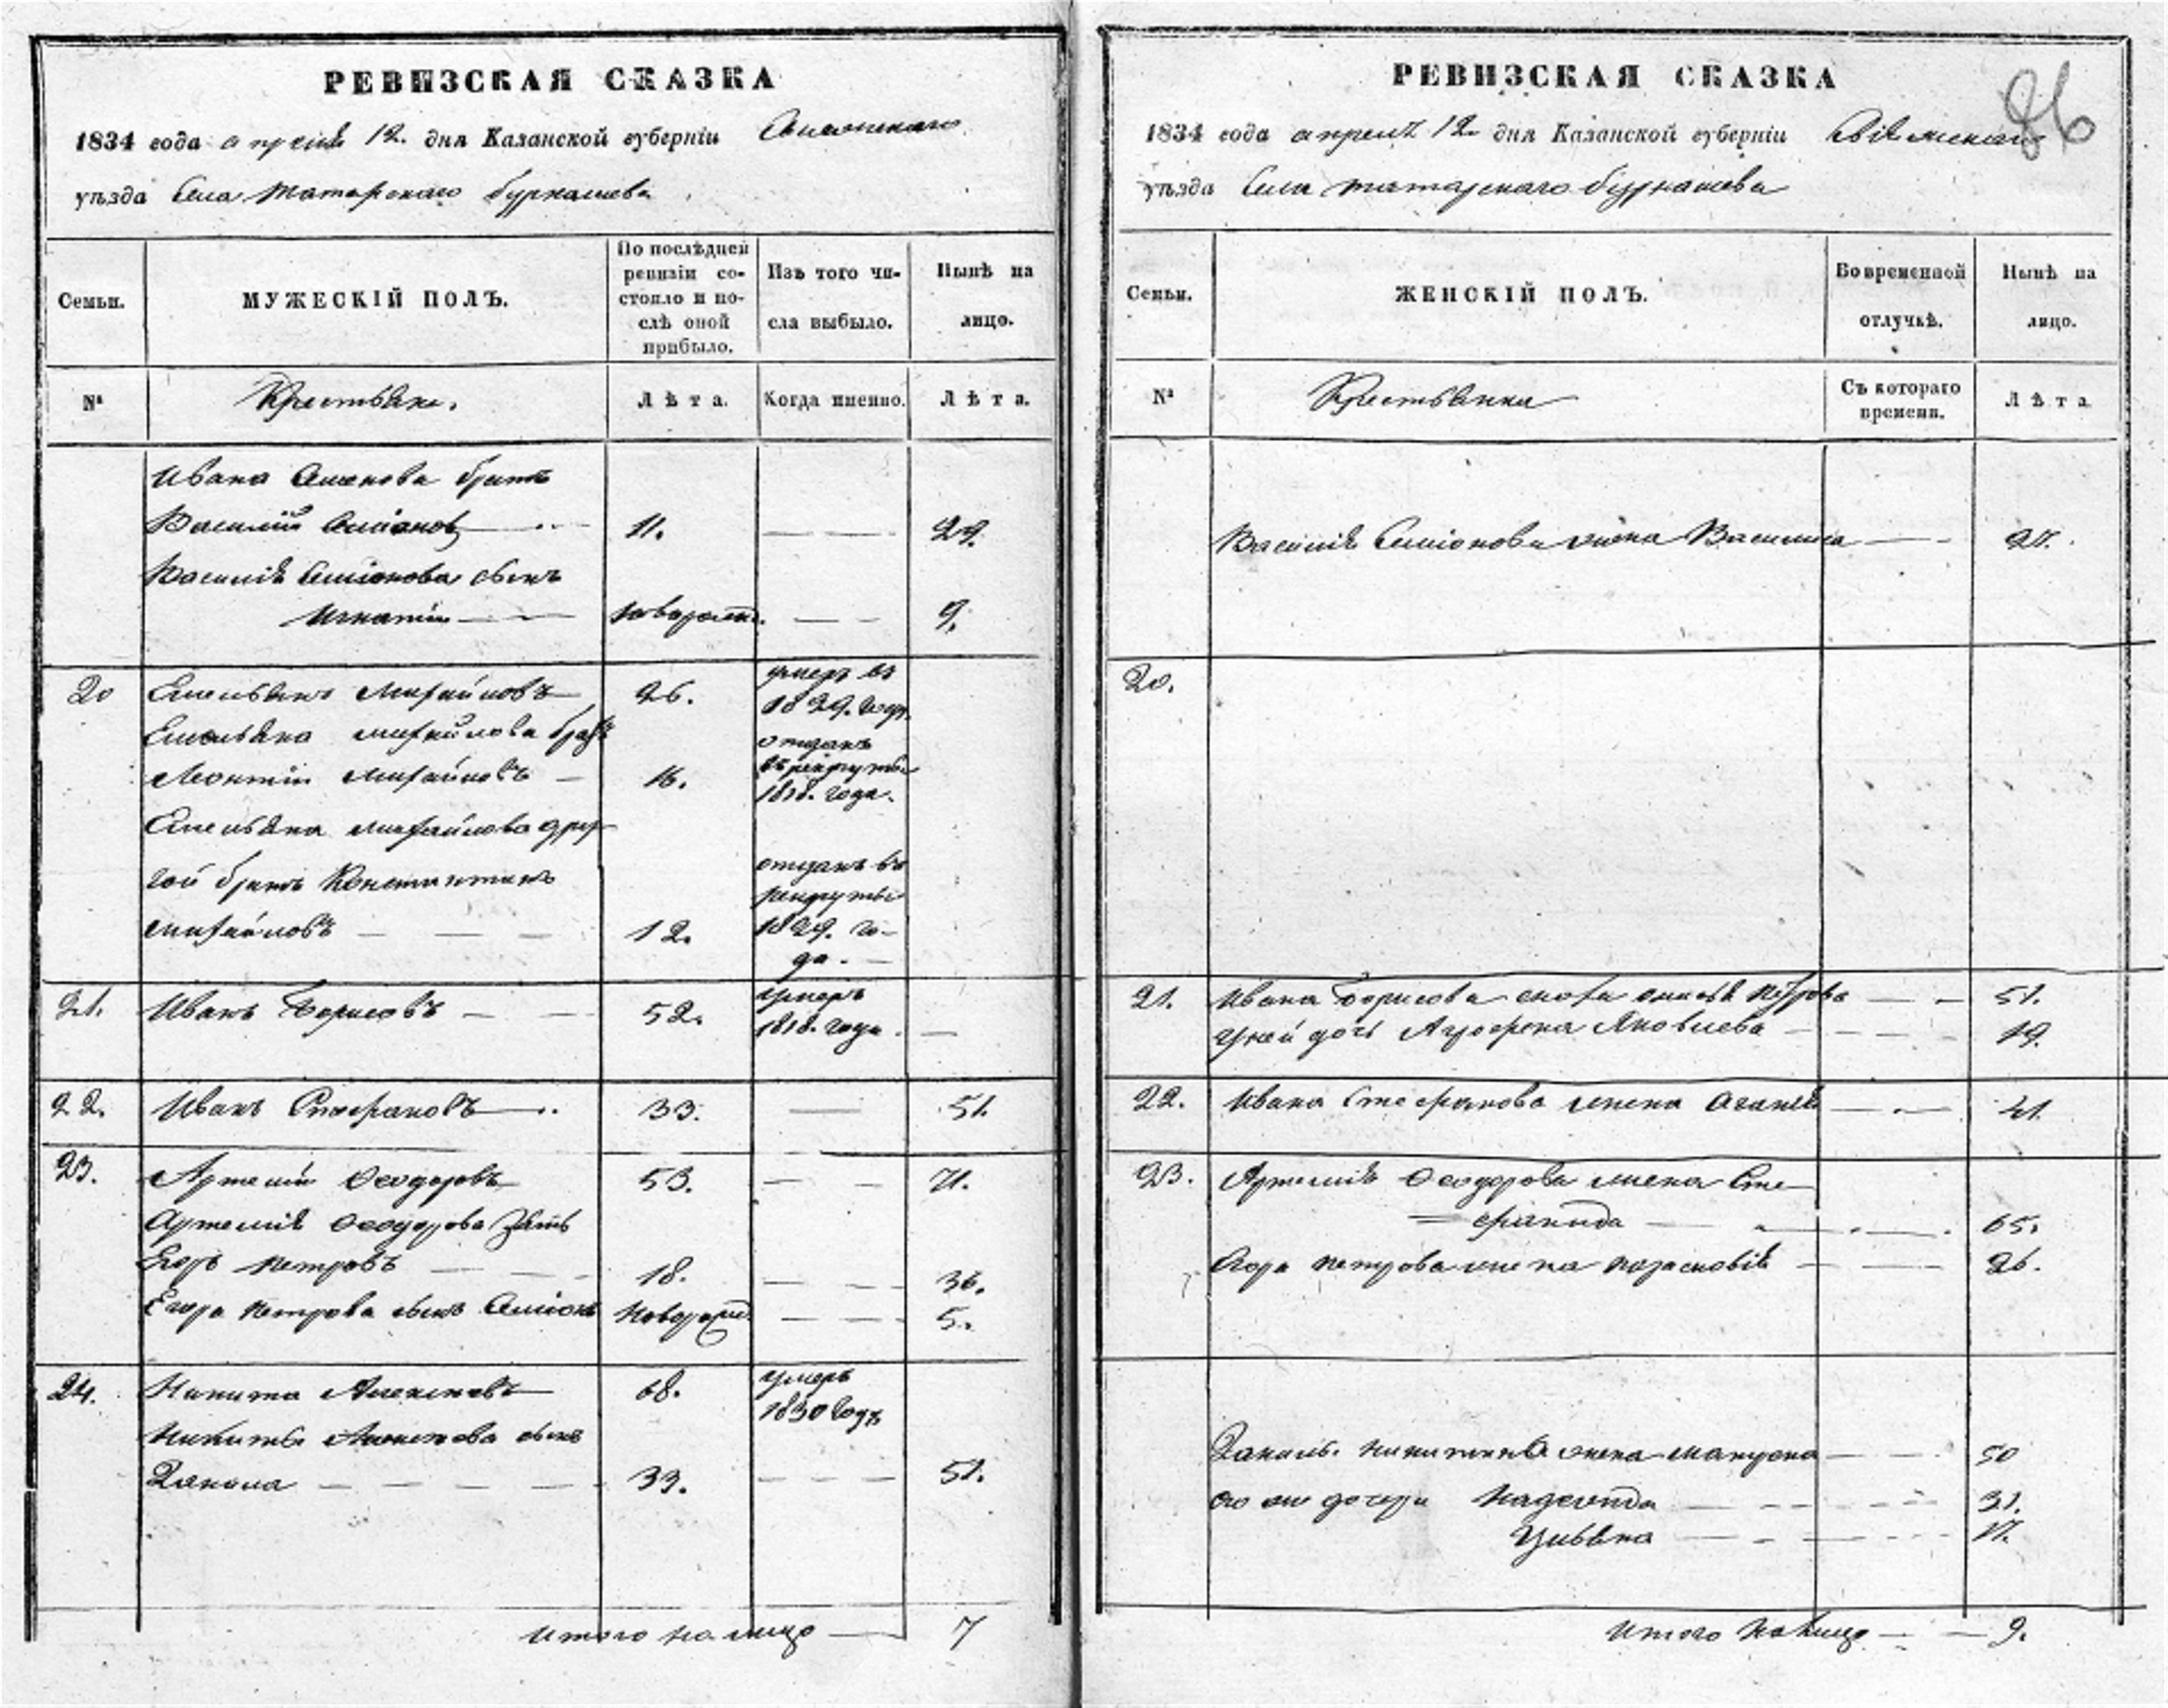 РЕВИЗСКАЯ СКАЗКА
1834 года апреля 12. дня Казанской губерніи
уѣзда села Татарского бурнашева
Семьи.
МУЖЕСКІЙ ПОЛЪ.
По послѣдней
ревизіи со-
стояло и по-
слѣ оной
прибыло.
Изъ того чи-
сла выбыло.
Нынѣ на
лицо.
№
Крестьяне.
Лѣта.
Когда именно.
Лѣта.
Ивана Семенова братъ
Василій Семіонов 11. 29.
Василія Семіонова сынъ
Игнатій новорожд. 9.
20 Емельянъ Михайловъ 26. умеръ въ
1829. году
Емельяна Михайлова братъ отданъ
Леонтій Михайловъ 16. въ рекруты
1818. года.
Емельяна Михайлова дру-
гой братъ Константинъ отданъ въ
рекруты
Михайловъ 12. 1829. го-
да.
21. Иванъ Борисовъ 52. умеръ
1818. года.
22. Иванъ Стефановъ 33. 51.
23. Артемій Феодоровъ 53. 71.
Артемія Феодорова зять
Егоръ Петровъ 18. 36.
Егора Петрова сынъ Семіонъ новорожд. 5.
24. Никита Алексеевъ 68. умеръ
1830 годъ
Никиты Алексеева сынъ
Данила 33. 51.
Итого на лицо 7
РЕВИЗСКАЯ СКАЗКА
86
1834 года апреля 12 дня Казанской губерніи Свіяжскаго
уѣзда села татарскаго бурнашева
Семьи.
ЖЕНСКІЙ ПОЛЪ.
Во временной
отлучкѣ.
Нынѣ на
лицо.
№
Крестьянки
Съ котораго
времени.
Лѣта
Василія Семіонова жена Василиса 27.
20.
21. Ивана Борисова сноха Петрова 51.
у ней дочь Агрофена Яковлева 19.
22. Ивана Стефанова жена 41.
23. Артемія Феодорова жена Сте-
фанида 65.
Егора Петрова жена Парасковія 26.
Данилы Никитина жена 50
его же дочери Надежда 21.
Ульяна 17.
Итого на лицо 9.